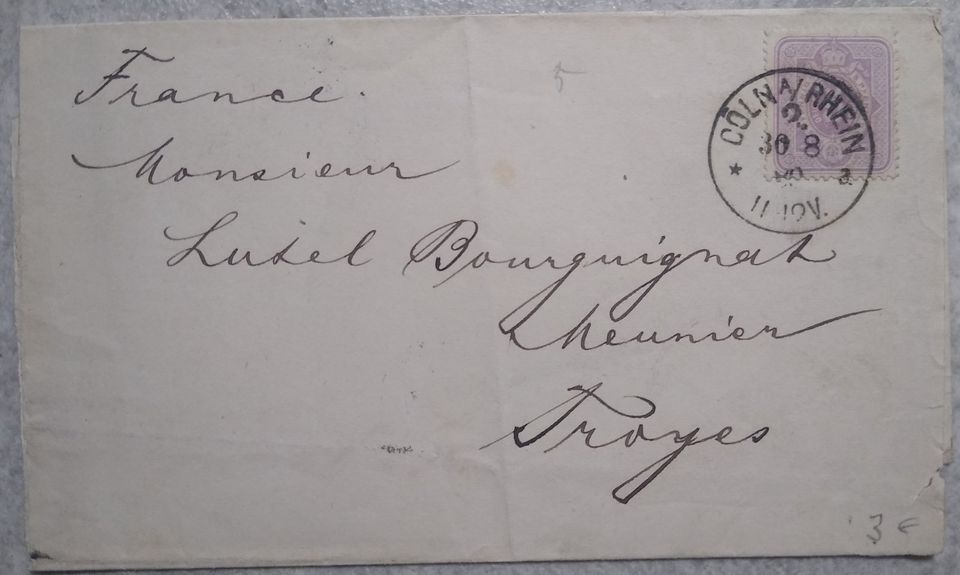 France.
5
CÖLN A/RHEIN
2.
30 8
80 a
11-12V.
Monsieur
Lutel Bourguignat
Meunier
Troyes
3 €